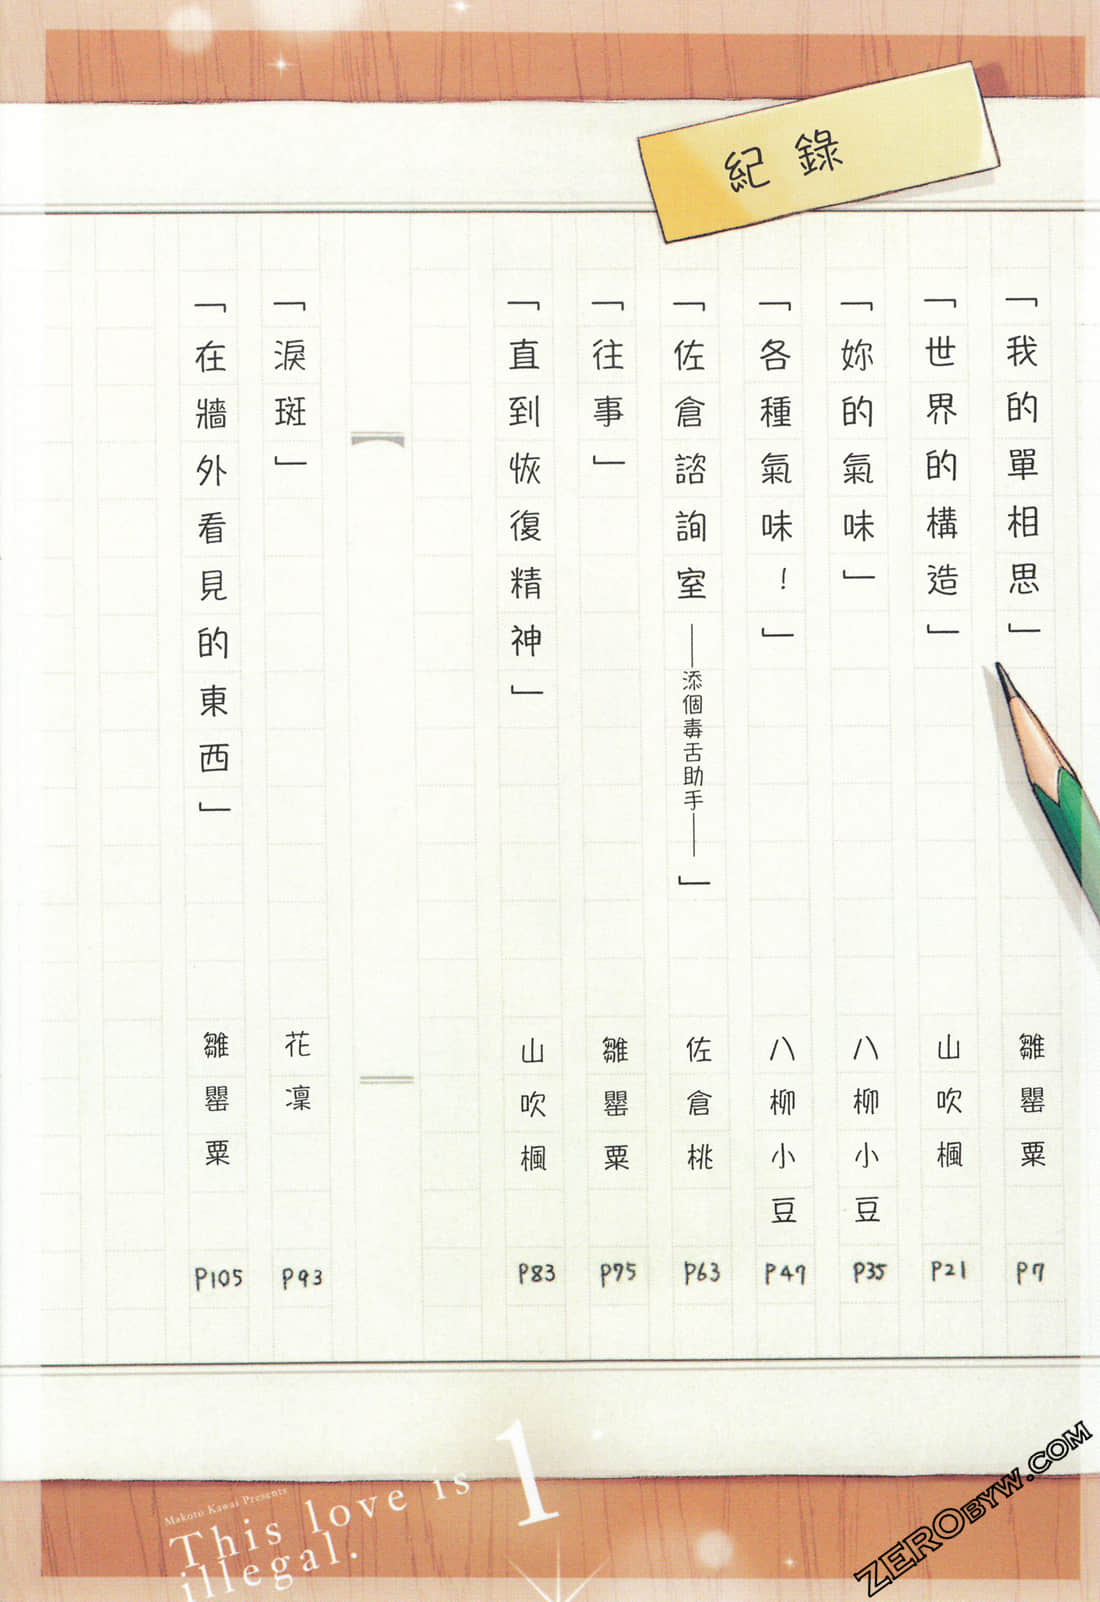 紀錄
「我的單相思」 雛罌粟 P7
「世界的構造」 山吹楓 P21
「妳的氣味」 八柳小豆 P35
「各種氣味!」 八柳小豆 P47
「佐倉諮詢室——添個毒舌助手——」 佐倉桃 P63
「往事」 雛罌粟 P75
「直到恢復精神」 山吹楓 P83
「淚斑」 花凜 P93
「在牆外看見的東西」 雛罌粟 P105
Makoto Kawai Presents
This love is
illegal.
1
ZEROBYW.COM